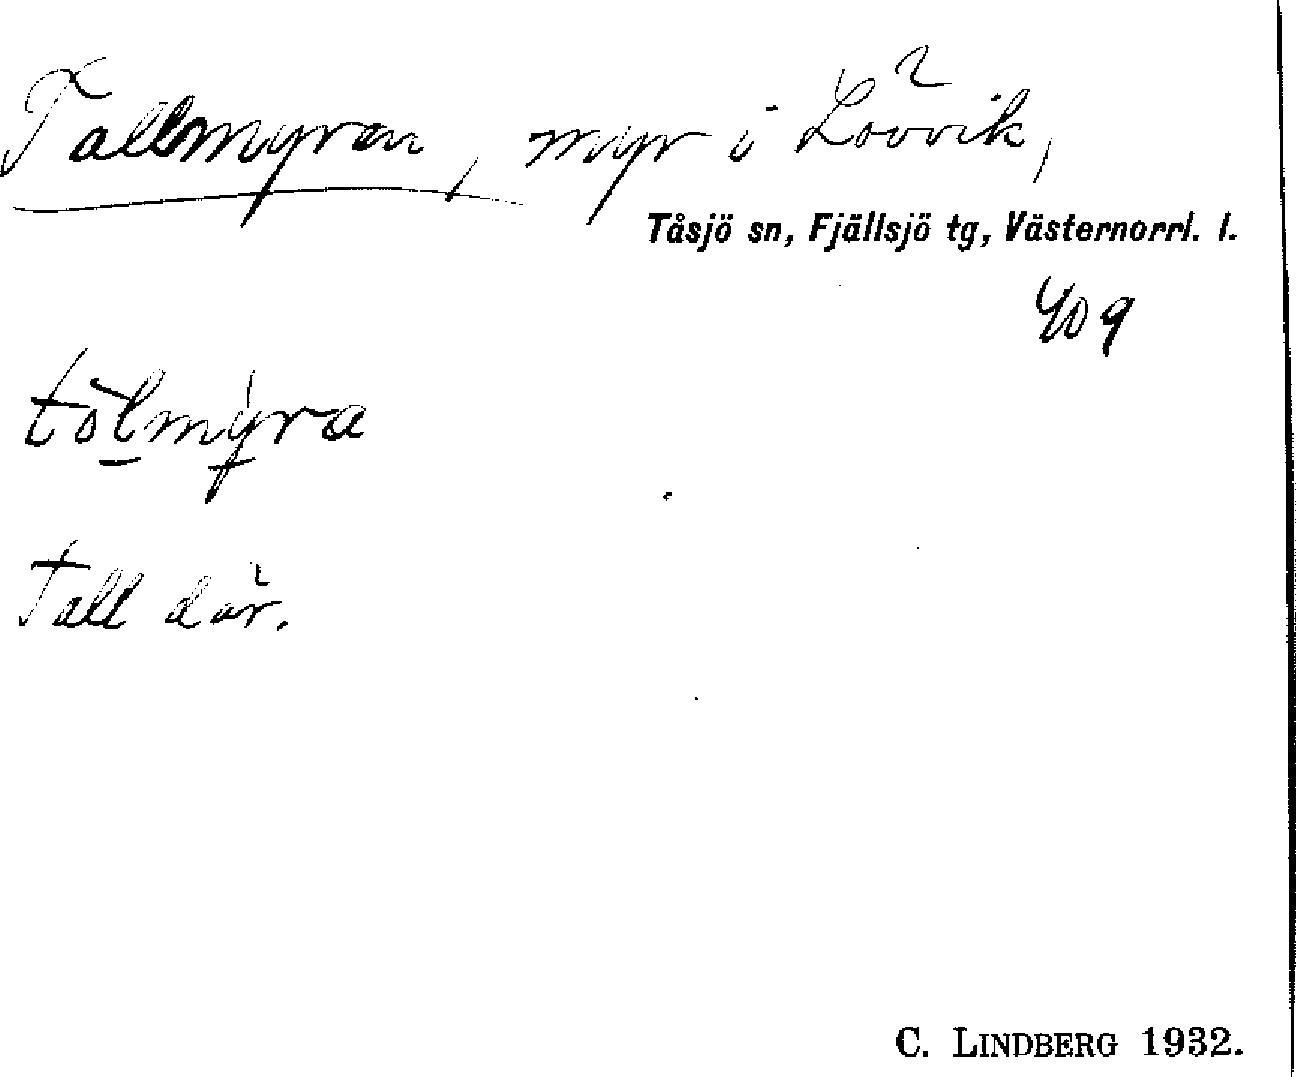 Tallmyran, myr i Lövvik,
Tåsjö sn, Fjällsjö tg, Västernorrl. l.
409
Tall där.
C. LINDBERG 1932.